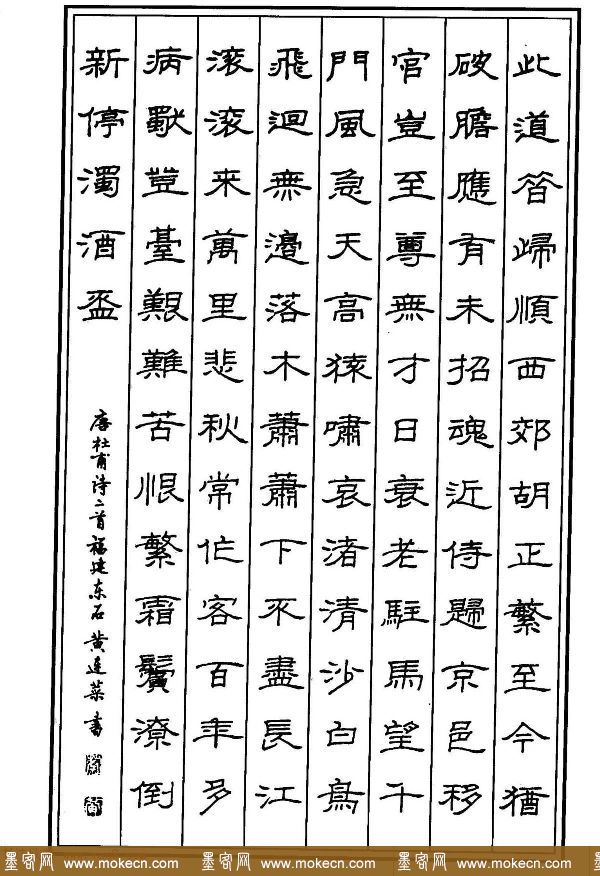 此道昔歸順西郊胡正繁至今猶
破膽應有未招魂近侍歸京邑移
官豈至尊無才日衰老駐馬望千
門風急天高猿嘯哀渚清沙白鳥
飛迴無邊落木蕭蕭下不盡長江
滾滾来萬里悲秋常作客百年多
病獨登臺艱難苦恨繁霜鬢潦倒
新停濁酒盃
唐杜甫诗二首福建东石黄莲菜书
墨客网 www.mokecn.com 墨客网 www.mokecn.com 墨客网 www.mokecn.com